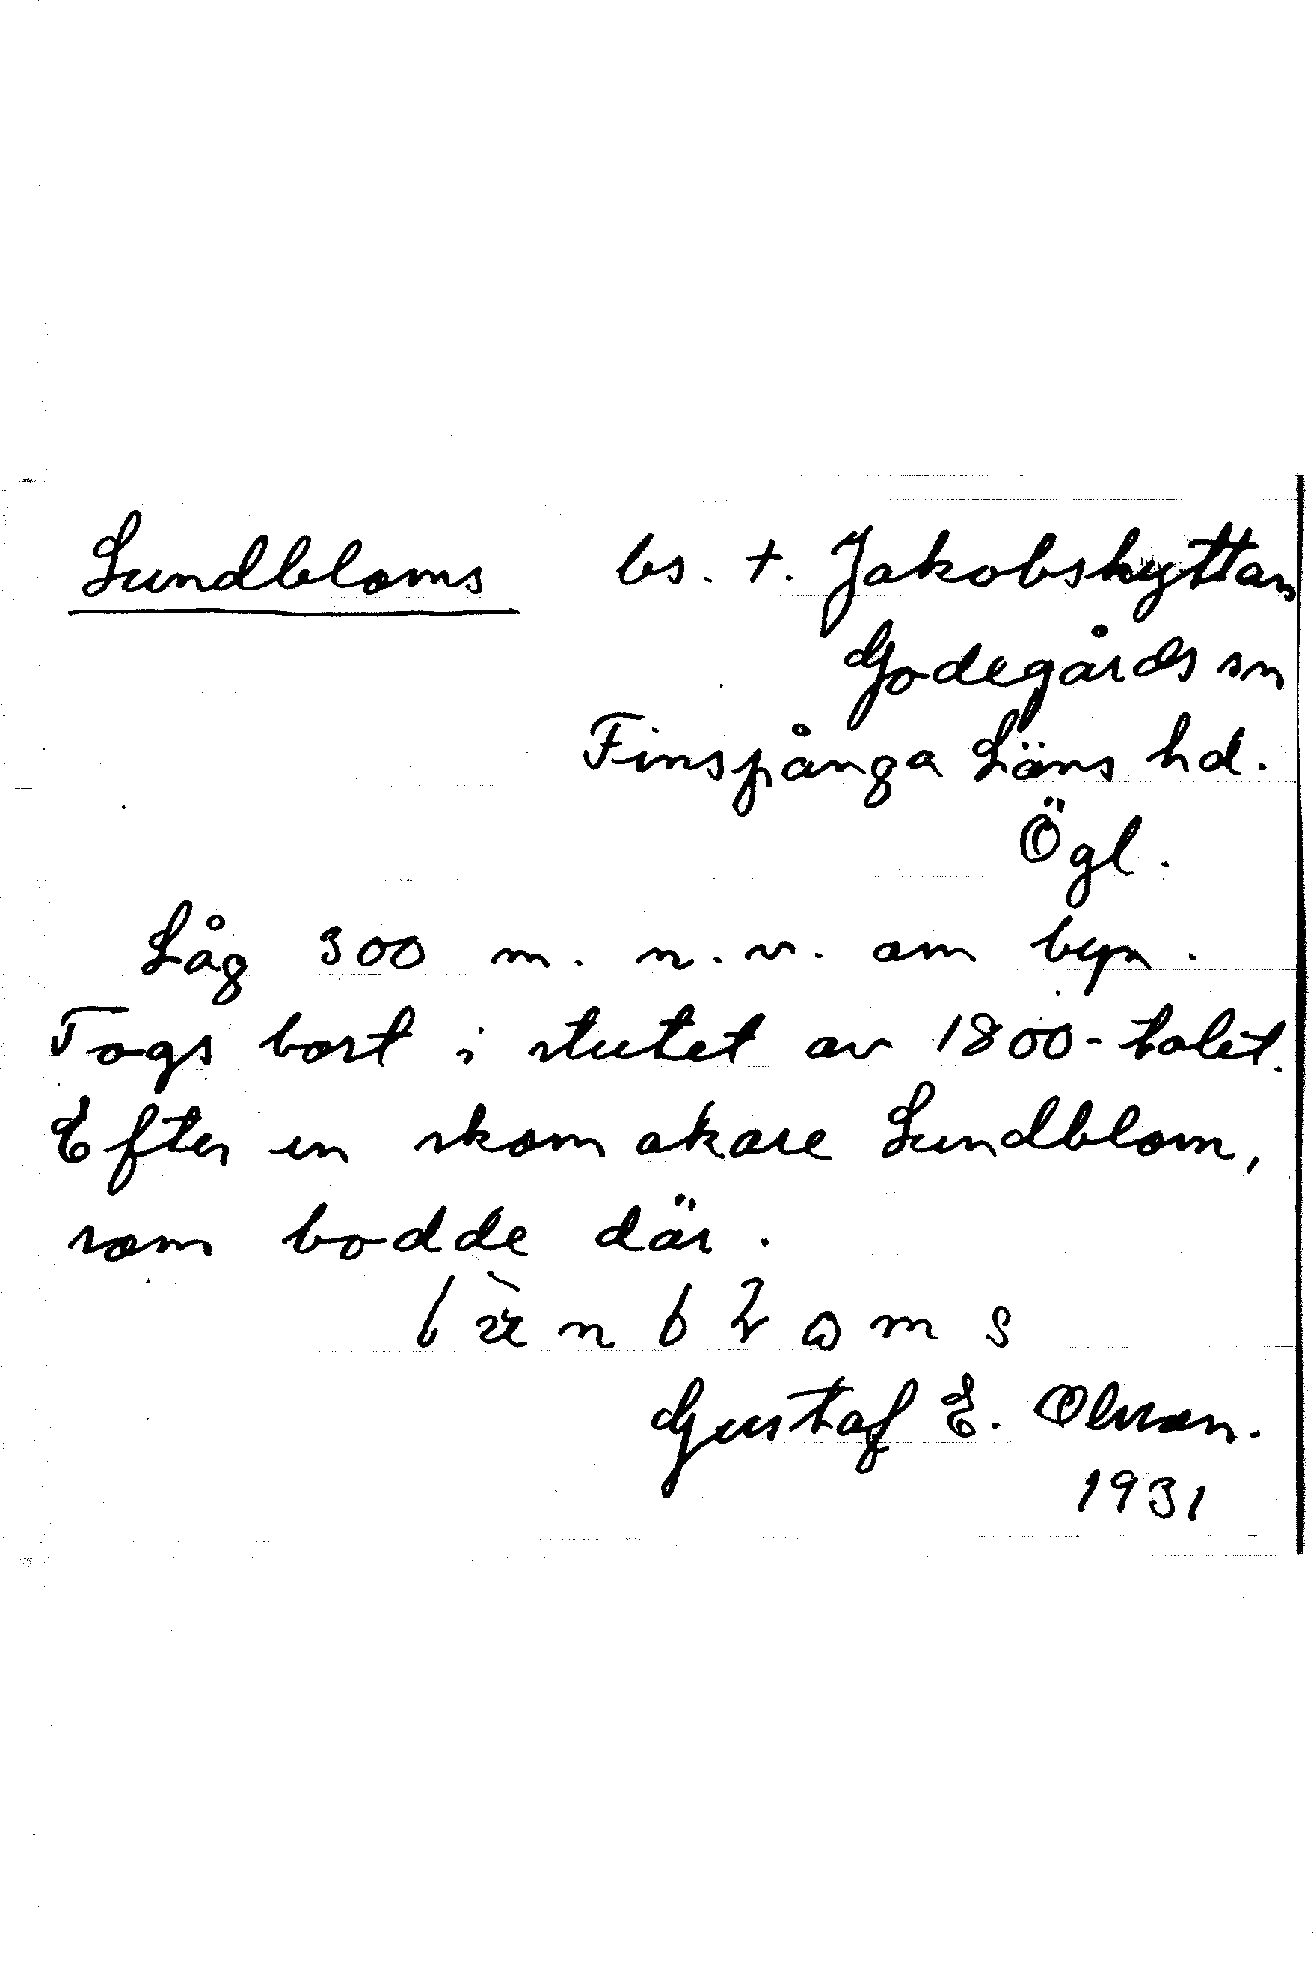 Lundbloms bs. t. Jakobshyttan
Godegårds sn
Finspånga Läns hd.
Ögl.
Låg 300 m. n.v. om byn.
Togs bort i slutet av 1800-talet.
Efter en skomakare Lundblom,
som bodde där.
Gustaf E. Olsson.
1931